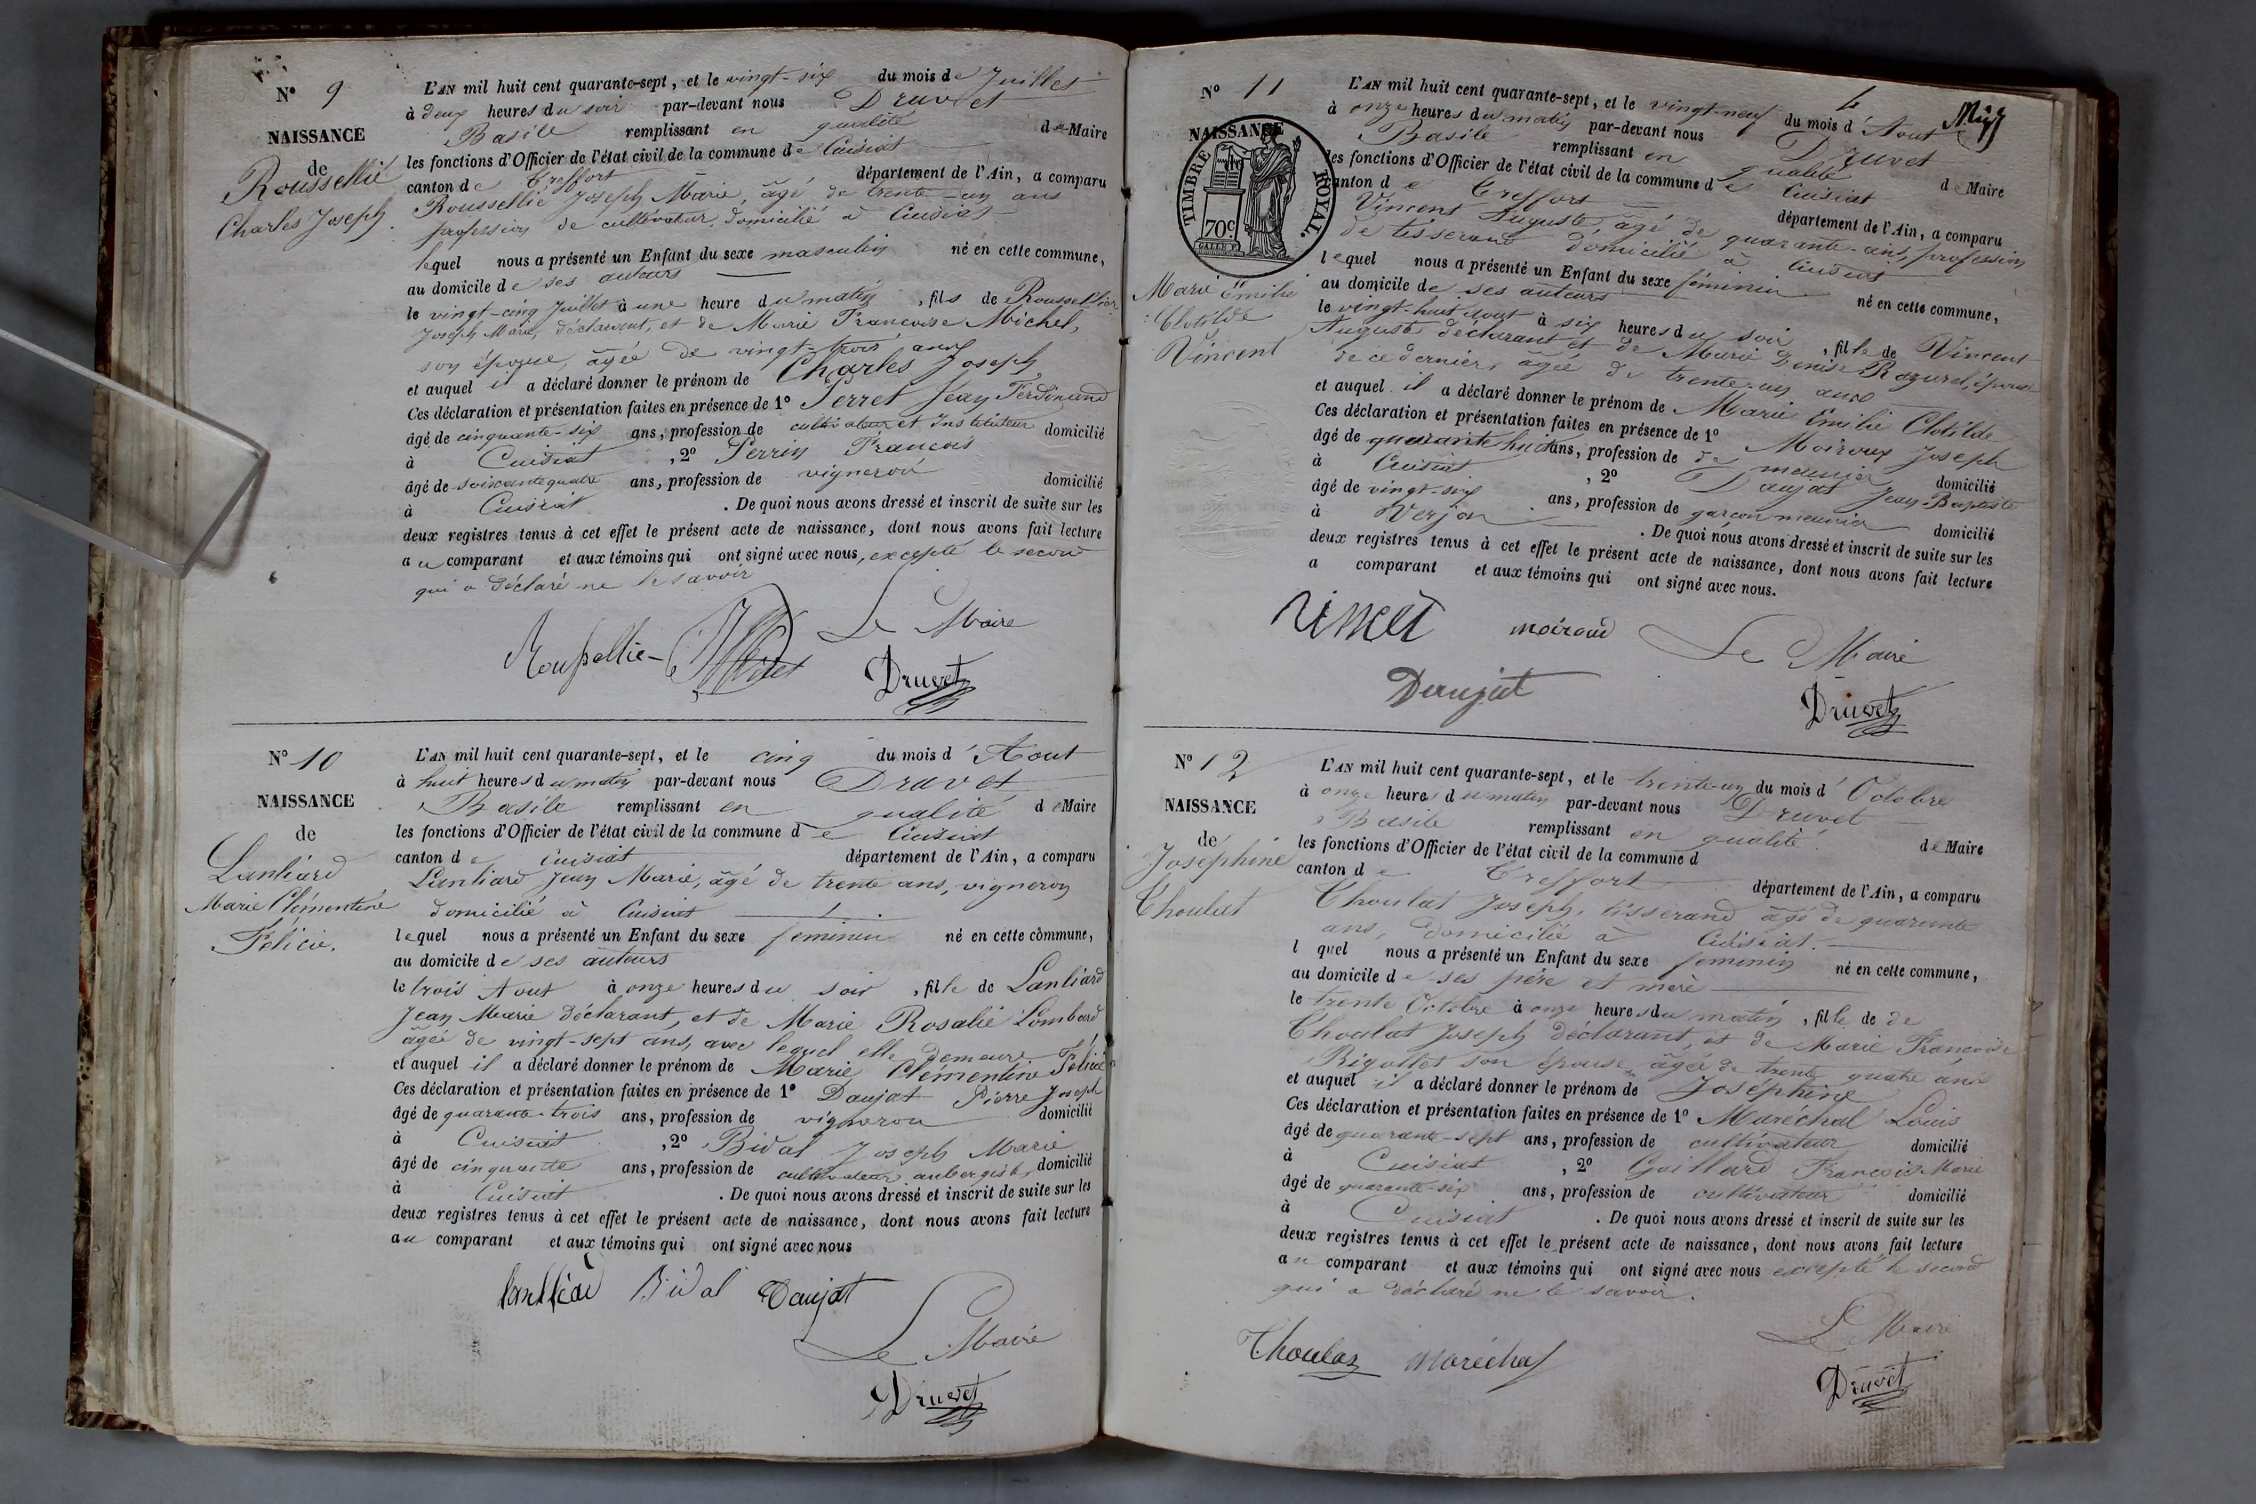 N° 9
NAISSANCE
de
Roussellié
Charles Joseph.
L'AN mil huit cent quarante-sept, et le vingt-six du mois de Juillet
à deux heures du soir par-devant nous Druvet
Basile remplissant en qualité de Maire
les fonctions d'Officier de l'état civil de la commune de Cuisiat
canton de Treffort département de l'Ain, a comparu
Roussellié Joseph Marie, âgé de trente-un ans
profession de cultivateur, domicilié à Cuisiat
lequel nous a présenté un Enfant du sexe masculin né en cette commune,
au domicile de ses auteurs
le vingt-cinq Juillet à une heure du matin, fils de Roussellier
Joseph Marie, déclarant, et de Marie Francoise Michel,
son épouse, âgée de vingt-trois ans
et auquel il a déclaré donner le prénom de Charles Joseph
Ces déclaration et présentation faites en présence de 1° Perret Jean Ferdinand
âgé de cinquante-six ans, profession de cultivateur et Instituteur domicilié
à Cuisiat, 2° Perrin Francois
âgé de soixante quatre ans, profession de vigneron domicilié
à Cuisiat. De quoi nous avons dressé et inscrit de suite sur les
deux registres tenus à cet effet le présent acte de naissance, dont nous avons fait lecture
au comparant et aux témoins qui ont signé avec nous, excepté le second
qui a déclaré ne le savoir
Roussellié Le Maire
Druvet
N° 10
NAISSANCE
de
Lanliard
Marie Clémentine
Félicie.
L'AN mil huit cent quarante-sept, et le cinq du mois d'Aout
à huit heures du matin par-devant nous Druvet
Basile remplissant en qualité de Maire
les fonctions d'Officier de l'état civil de la commune de Cuisiat
canton de Cuisiat département de l'Ain, a comparu
Lanliard Jean Marie, âgé de trente ans, vigneron
domicilié à Cuisiat
lequel nous a présenté un Enfant du sexe feminin né en cette commune,
au domicile de ses auteurs
le trois Aout à onze heures du soir, fille de Lanliard
Jean Marie déclarant, et de Marie Rosalie Lombard
âgée de vingt-sept ans, avec lequel elle demeure
et auquel il a déclaré donner le prénom de Marie Clémentine Félicie
Ces déclaration et présentation faites en présence de 1° Daujat Pierre Joseph
âgé de quarante-trois ans, profession de vigneron domicilié
à Cuisiat, 2° Bidal Joseph Marie
âgé de cinquante ans, profession de cultivateur aubergiste, domicilié
à Cuisiat. De quoi nous avons dressé et inscrit de suite sur les
deux registres tenus à cet effet le présent acte de naissance, dont nous avons fait lecture
au comparant et aux témoins qui ont signé avec nous
Bidal Daujat
Le Maire
Druvet
N° 11
NAISSANCE
TIMBRE ROYAL.
70c
Marie Émilie
Clotilde
Vincent
L'AN mil huit cent quarante-sept, et le vingt-neuf du mois d'Aout
à onze heures du matin par-devant nous Druvet
Basile remplissant en qualité de Maire
les fonctions d'Officier de l'état civil de la commune de Cuisiat
canton de Treffort département de l'Ain, a comparu
Vincent Auguste, âgé de quarante-ans, profession
de tisserand domicilié à Cuisiat
lequel nous a présenté un Enfant du sexe féminin né en cette commune,
au domicile de ses auteurs
le vingt-huit aout à six heures du soir, fille de Vincent
Auguste déclarant et de Marie Denise Razurel, épouse
de ce dernier, âgée de trente-un ans
et auquel il a déclaré donner le prénom de Marie Émilie Clotilde
Ces déclaration et présentation faites en présence de 1° Moiroux Joseph
âgé de quarante huit ans, profession de de meunier domicilié
à Cuisiat, 2° Daujat Jean-Baptiste
âgé de vingt-six ans, profession de garcon meunier domicilié
à Verjon. De quoi nous avons dressé et inscrit de suite sur les
deux registres tenus à cet effet le présent acte de naissance, dont nous avons fait lecture
a comparant et aux témoins qui ont signé avec nous.
Vincent moiroud Le Maire
Daujat
Druvet
N° 12
NAISSANCE
de
Joséphine
Choulat
L'AN mil huit cent quarante-sept, et le trente-un du mois d'Octobre
à onze heures du matin par-devant nous Druvet
Basile remplissant en qualité de Maire
les fonctions d'Officier de l'état civil de la commune d
canton de Treffort département de l'Ain, a comparu
Choulat Joseph, tisserand âgé de quarante
ans, domicilié à Cuisiat.
l quel nous a présenté un Enfant du sexe feminin né en cette commune,
au domicile de ses père et mère
le trente Octobre à onze heures du matin, fille de de
Choulat Joseph déclarant, et de Marie Francoise
Rigollet son épouse âgée de trente quatre ans
et auquel il a déclaré donner le prénom de Joséphine
Ces déclaration et présentation faites en présence de 1° Maréchal Louis
âgé de quarante-sept ans, profession de cultivateur domicilié
à Cuisiat, 2° Gaillard Francois Marie
âgé de quarante-six ans, profession de cultivateur domicilié
à Cuisiat. De quoi nous avons dressé et inscrit de suite sur les
deux registres tenus à cet effet le présent acte de naissance, dont nous avons fait lecture
au comparant et aux témoins qui ont signé avec nous excepté le second
qui a déclaré ne le savoir.
Choulat Maréchal
Le Maire
Druvet